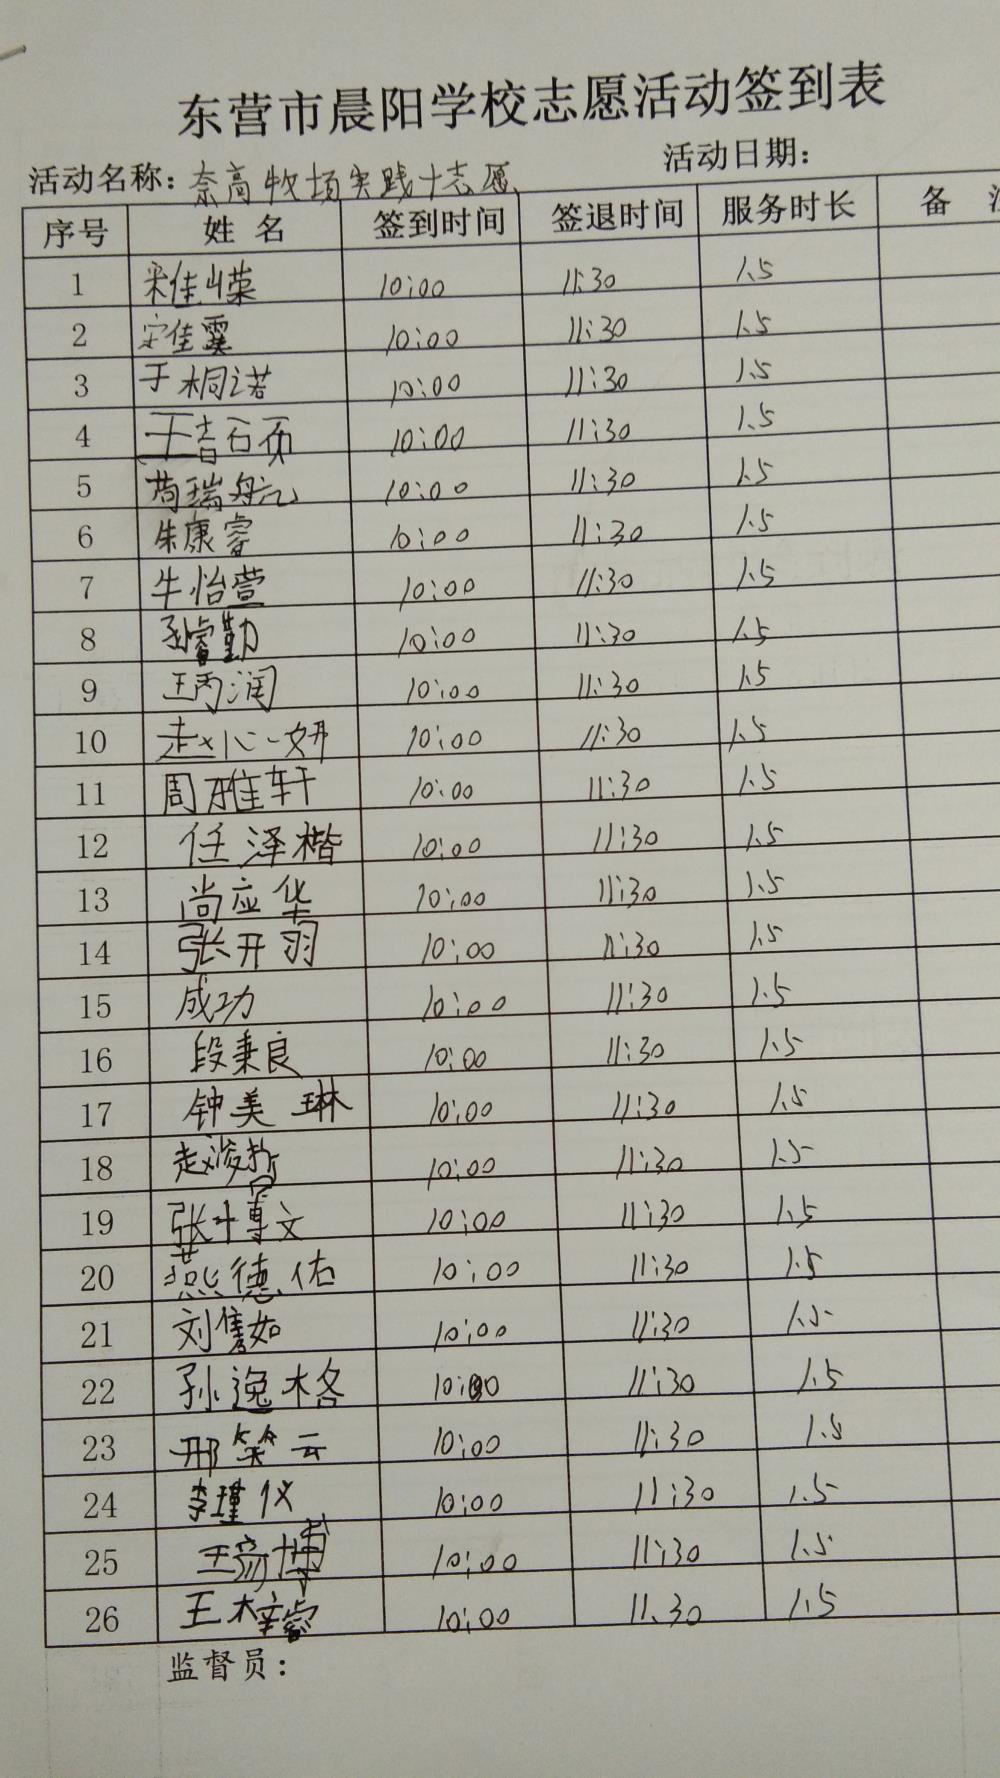 东营市晨阳学校志愿活动签到表
活动名称：奈高牧场实践+志愿 活动日期：
序号 姓名 签到时间 签退时间 服务时长 备
1 宋佳嵘 10:00 11:30 1.5
2 宋佳霙 10:00 11:30 1.5
3 于桐诺 10:00 11:30 1.5
4 王吉硕 10:00 11:30 1.5
5 瑞航 10:00 11:30 1.5
6 朱康睿 10:00 11:30 1.5
7 牛怡萱 10:00 11:30 1.5
8 孙睿勤 10:00 11:30 1.5
9 王丙润 10:00 11:30 1.5
10 赵心妍 10:00 11:30 1.5
11 周雅轩 10:00 11:30 1.5
12 任泽楷 10:00 11:30 1.5
13 尚应华 10:00 11:30 1.5
14 张开羽 10:00 11:30 1.5
15 成功 10:00 11:30 1.5
16 段秉良 10:00 11:30 1.5
17 钟美琳 10:00 11:30 1.5
18 赵浚哲 10:00 11:30 1.5
19 张博文 10:00 11:30 1.5
20 燕德佑 10:00 11:30 1.5
21 刘隽如 10:00 11:30 1.5
22 孙逸格 10:00 11:30 1.5
23 邢笑云 10:00 11:30 1.5
24 李瑾仪 10:00 11:30 1.5
25 王彦博 10:00 11:30 1.5
26 王梓睿 10:00 11.30 1.5
监督员：